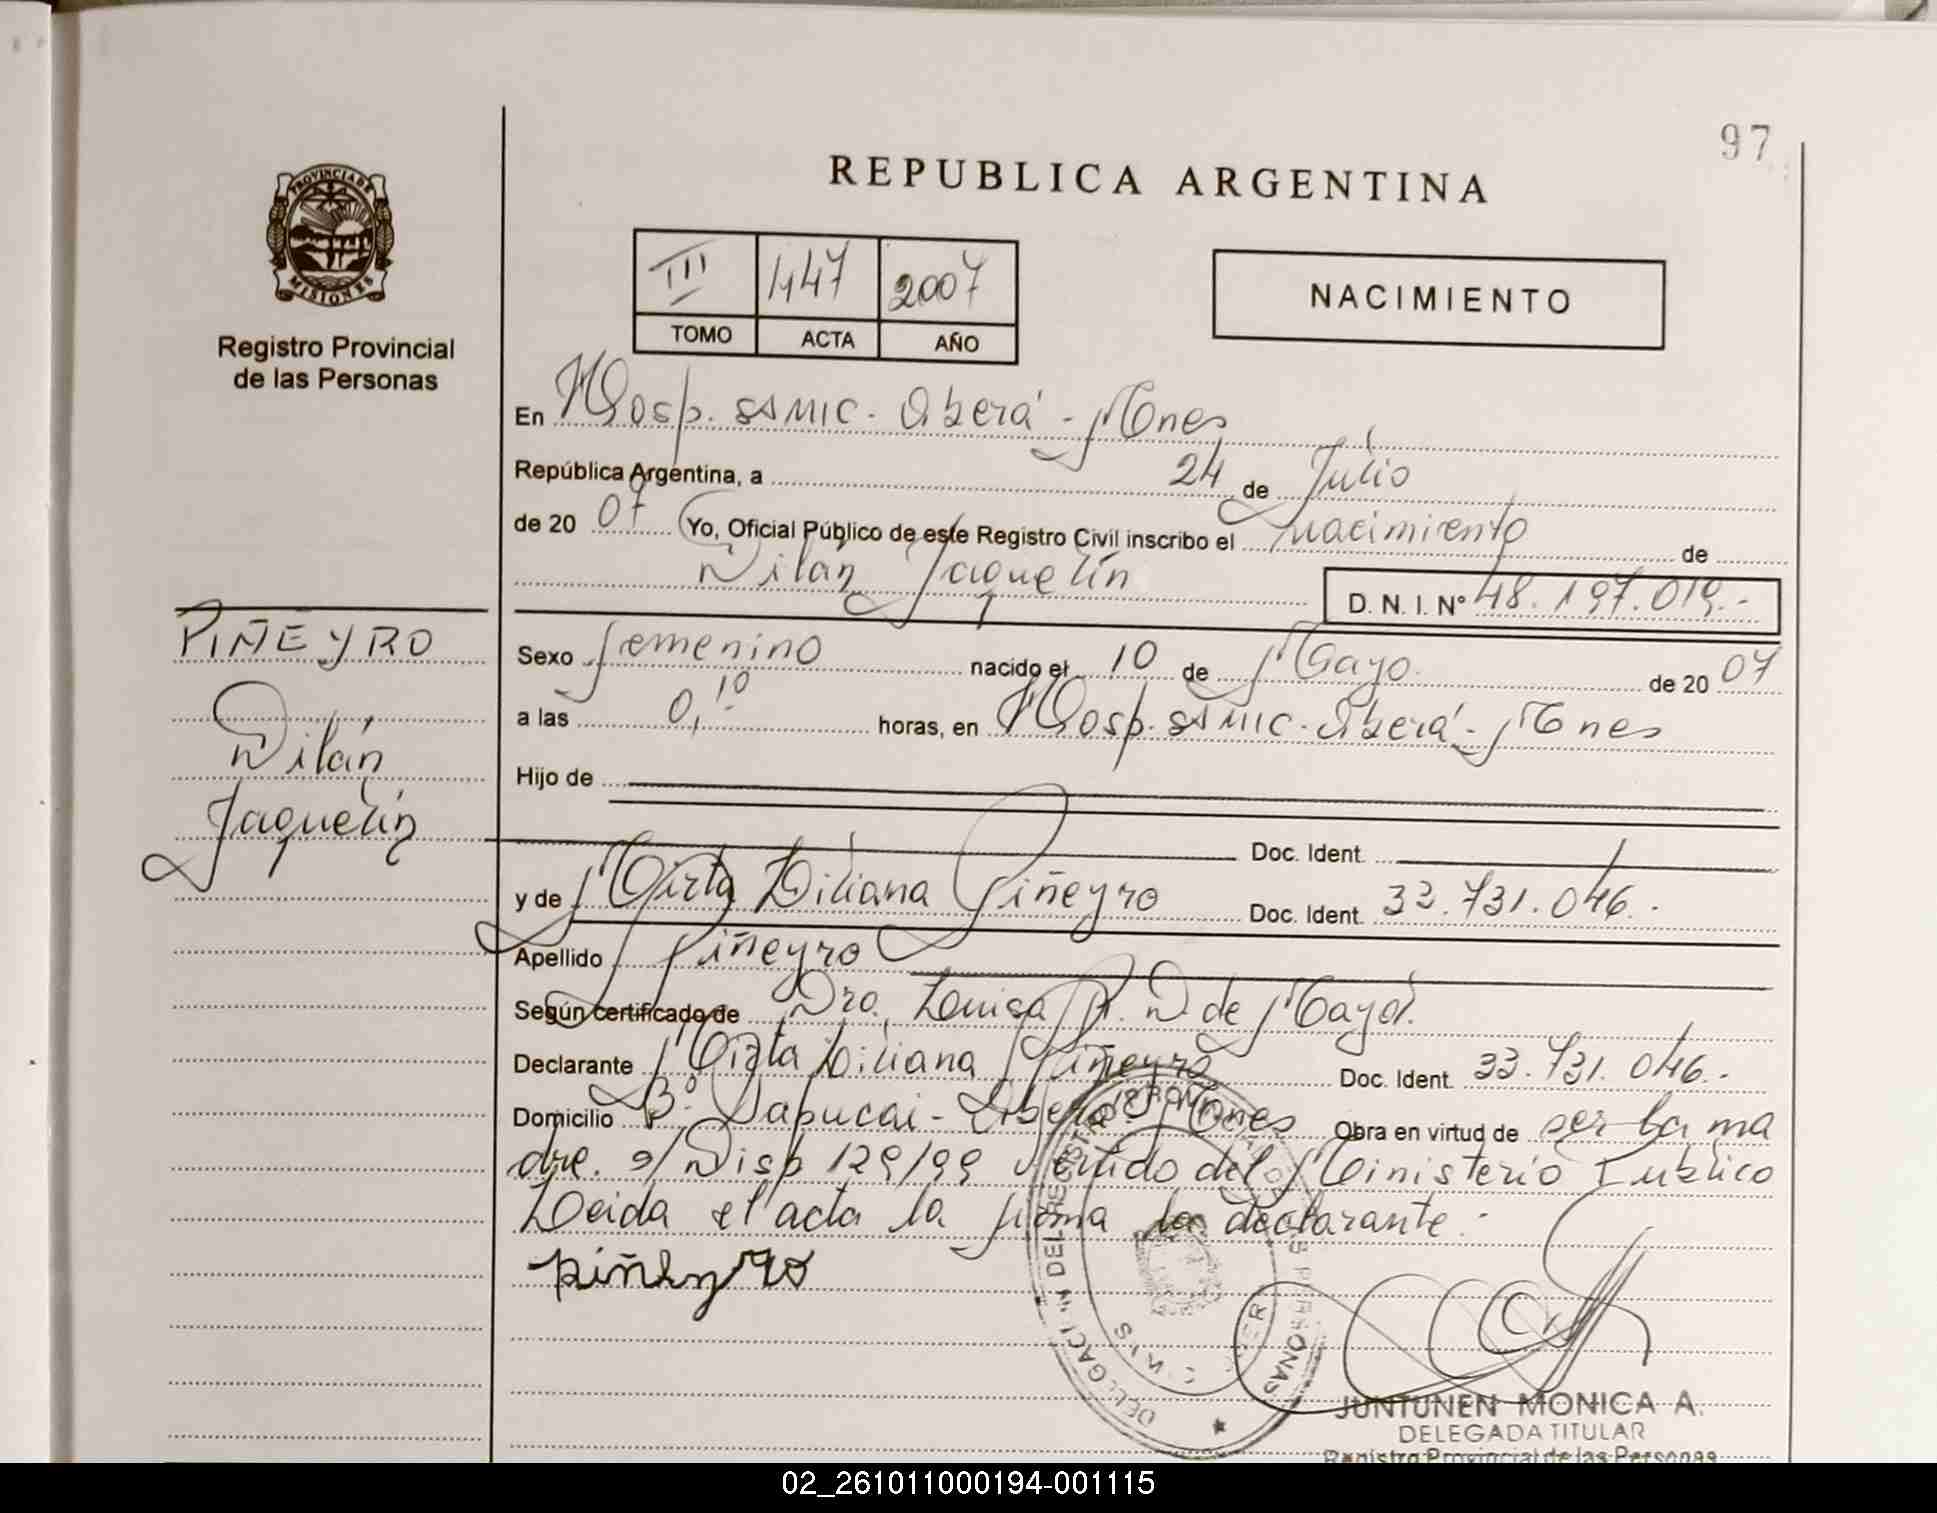 97
REPUBLICA ARGENTINA
PROVINCIA DE
MISIONES
Registro Provincial
de las Personas
III 447 2007
TOMO ACTA AÑO
NACIMIENTO
En Hosp. SAMIC. Oberá - Mnes
República Argentina, a 24 de Julio
de 20 07 Yo, Oficial Público de este Registro Civil inscribo el nacimiento de
Dilán Jaquelin D. N. I. Nº 48.197.019.-
PIÑEYRO
Dilán
Jaquelin
Sexo femenino nacido el 10 de Mayo de 20 07
a las 0,10 horas, en Hosp. SAMIC. Oberá - Mnes
Hijo de
Doc. Ident.
y de Mirta Liliana Piñeyro Doc. Ident. 33.731.046.
Apellido Piñeyro
Según certificado de Dra. Louisa R. D de Mayol.
Declarante Mirta Liliana Piñeyro Doc. Ident. 33.731.046.-
Domicilio Bº Sapucai - Oberá Mnes Obra en virtud de ser la ma
dre. s/ Disp 129/99 del Ministerio Publico
Leida el acta la firma la declarante.
piñeyro
JUNTUNEN MONICA A.
DELEGADA TITULAR
Registro Provincial de las Personas
02_261011000194-001115